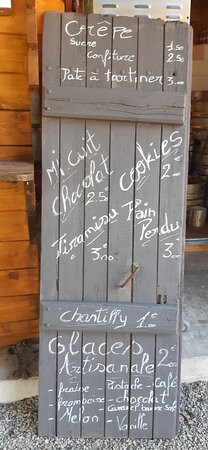 Crêpe
Sucre 1.50
Confiture 2.50
Pate à tartiner 3.00
Mi Cuit
Chocolat
2.50
Cookies
2.00
Tiramisu
3.00
Pain
Perdu
3.00
Chantilly 1.00
Glaces
Artisanale 2.00
- fraise - Pistache - café
- framboise - chocolat
- Caramel beurre salé
- Melon - Vanille